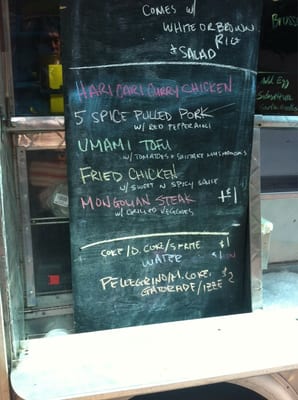 COMES W/
WHITE OR BROWN
RICE
+ SALAD
HARI CARI CURRY CHICKEN
5 SPICE PULLED PORK
W/ RED PEPPER AIOLI
UMAMI TOFU
W/ TOMATOES + SHIITAKE MUSHROOMS
FRIED CHICKEN
W/ SWEET N SPICY SAUCE
MONGOLIAN STEAK +$1
W/ GRILLED VEGGIES
COKE/D. COKE/SPRITE $1
WATER $1
PELLEGRINO/M. COKE $2
GATORADE/IZZE
Add Egg
Substitute